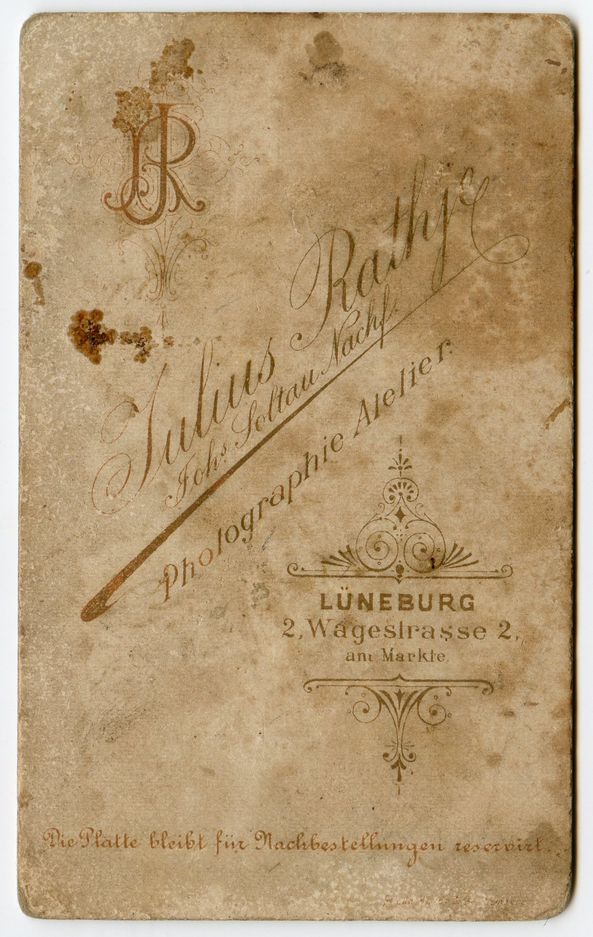 JR
Julius Rathje
Johs. Soltau Nachf.
Photographie Atelier.
LÜNEBURG
2, Wagestrasse 2,
am Markte.
Die Platte bleibt für Nachbestellungen reservirt.